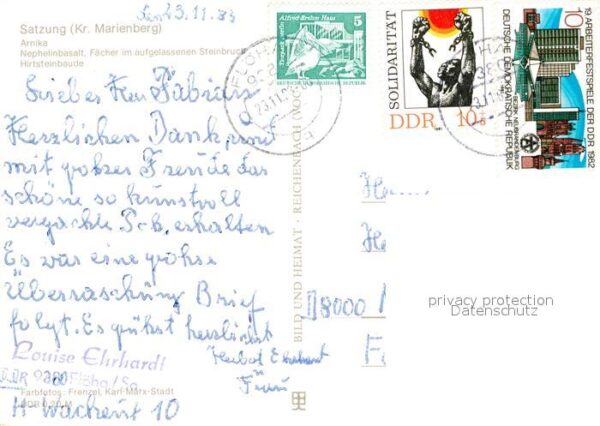 den 23.11.83
Satzung (Kr. Marienberg)
Arnika
Nephelinbasalt, Fächer im aufgelassenen Steinbruch
Hirtsteinbaude
Lieber Herr Fabian
Herzlichen Dank und
mit großer Freude das
schöne so kunstvoll
verpackte P.k. erhalten
Es war eine große
Überraschung Brief
folgt. Es grüßt herzlichst
Herbert Ehrhardt
Frau
Louise Ehrhardt
DDR 9380 Flöha/Sa.
Farbfotos: Frenzel, Karl-Marx-Stadt
H-Wackent 10
BILD UND HEIMAT · REICHENBACH (VOGTL
5
Alfred-Brehm Haus
Tierpark Berlin
DEUTSCHE DEMOKRATISCHE REPUBLIK
FLÖHA
23.11.
SOLIDARITÄT
DDR 10+5
10
19. ARBEITERFESTSPIELE DER DDR 1982
DEUTSCHE DEMOKRATISCHE REPUBLIK
BEZIRK NEUBRANDENBURG
He
8000
privacy protection
Datenschutz